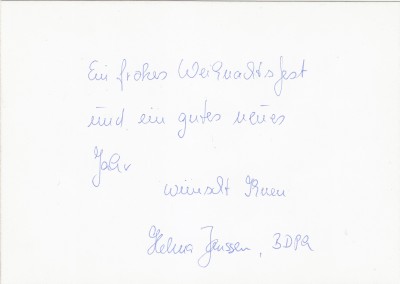 Ein frohes Weihnachtsfest
und ein gutes neues
Jahr
wünscht Ihnen
Helma Janssen, BDPR